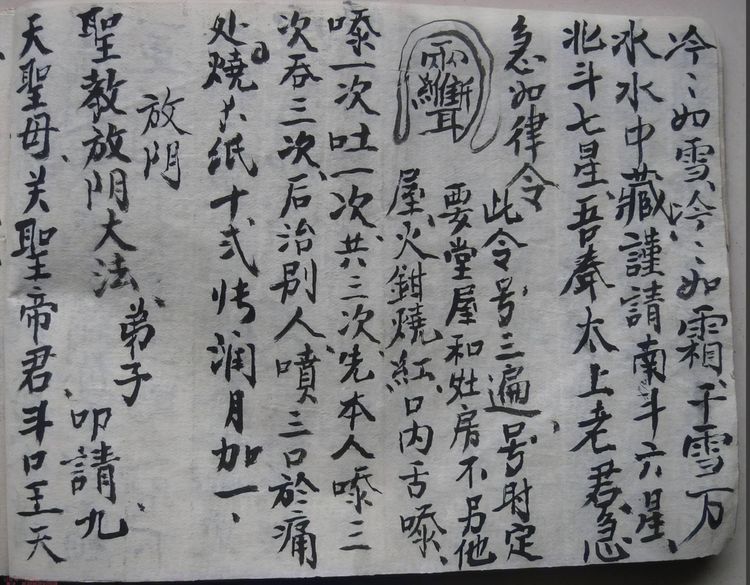 冷〻如雪、冷〻如霜、千雪万
氷水中藏謹請南斗六星、
北斗七星、吾奉太上老君、急
急如律令
此令号三遍、号时定
要堂屋和灶房不另他
屋、火鉗燒紅、口内舌嗏、
嗏一次吐一次、共三次、先本人嗏三
次吞三次、后治别人、噴三口於痛
处、燒六纸十弍帐、润月加一、
放阴
聖教放阴大法、弟子、叩請九、
天聖母、关聖帝君、斗口王天